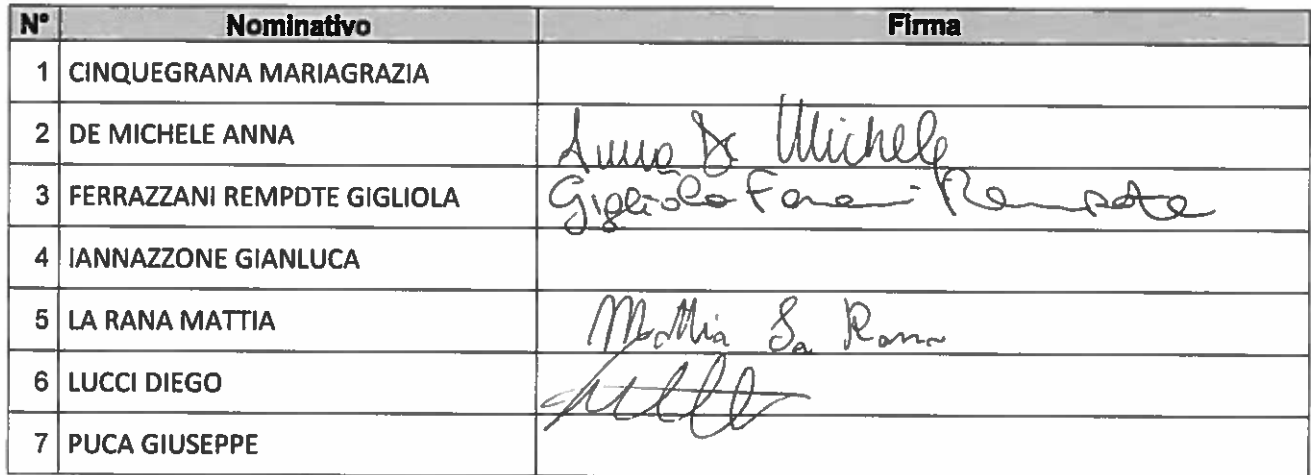 N° Nominativo Firma
1 CINQUEGRANA MARIAGRAZIA
2 DE MICHELE ANNA Anna De Michele
3 FERRAZZANI REMPDTE GIGLIOLA Gigliola Rempdte
4 IANNAZZONE GIANLUCA
5 LA RANA MATTIA Mattia La Rana
6 LUCCI DIEGO
7 PUCA GIUSEPPE